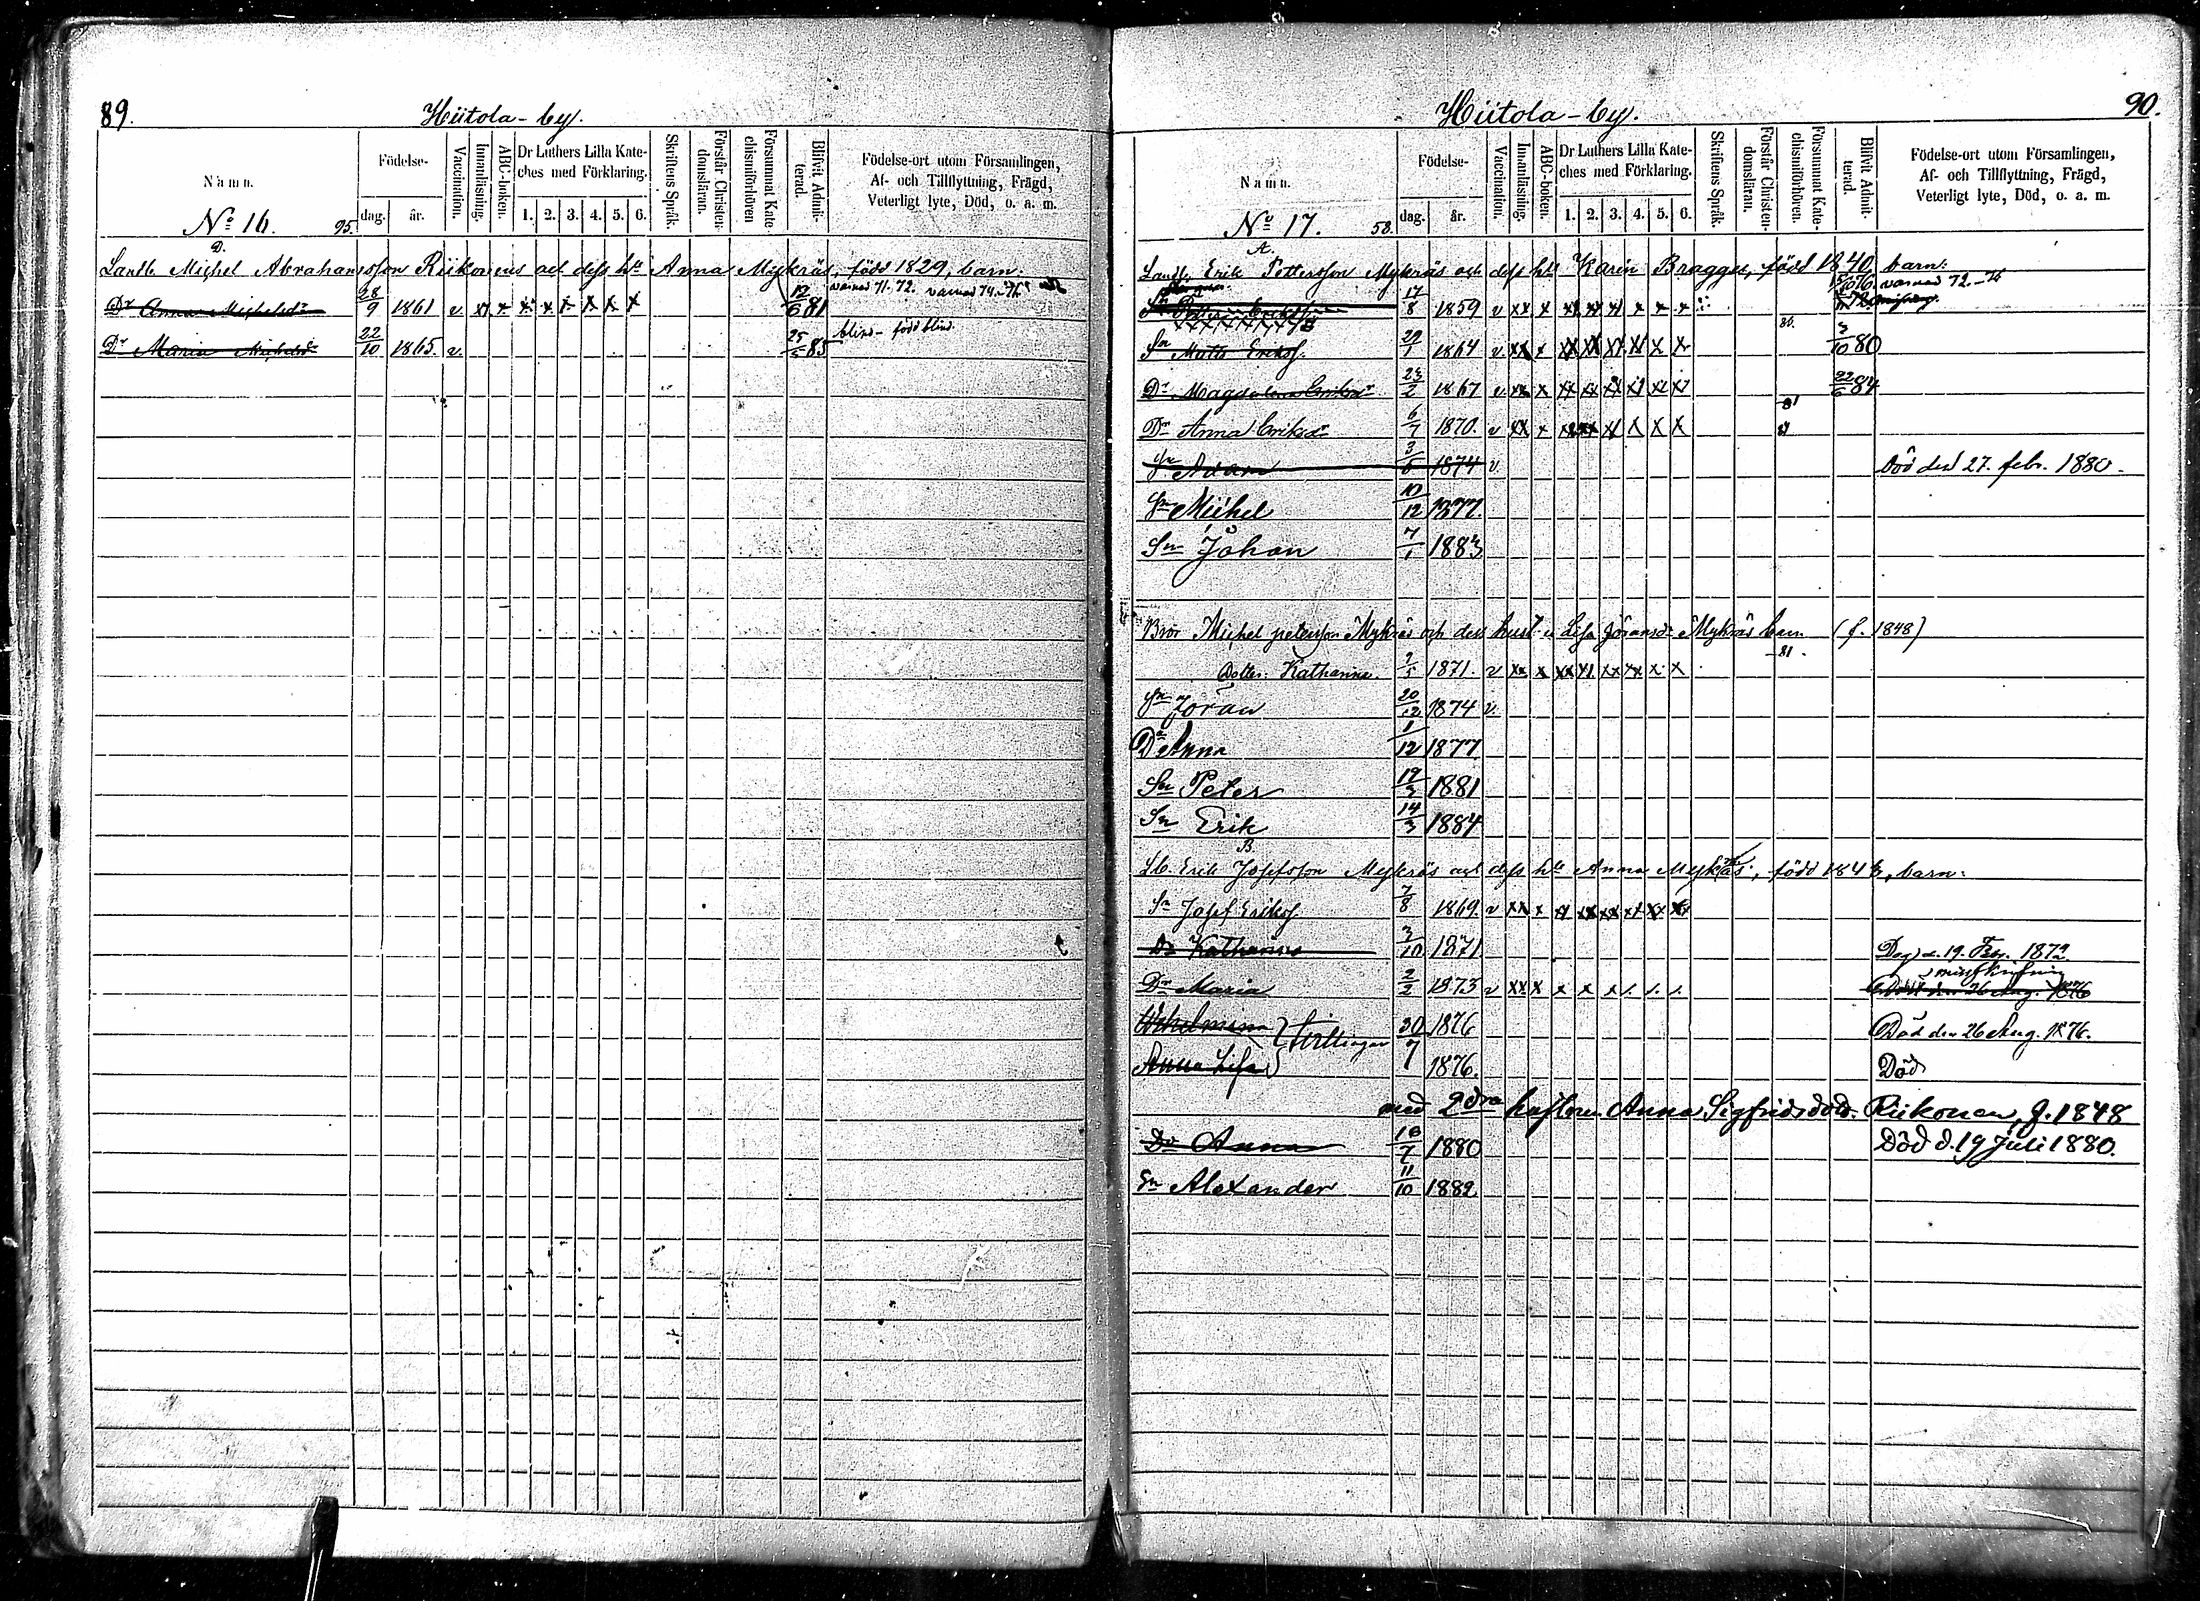 89.
Hiitola-by.
Namn.
Födelse-
dag.
år.
Vaccination.
Innanläsning.
ABC-boken.
Dr Luthers Lilla Kate-
ches med Förklaring.
1. 2. 3. 4. 5. 6.
Skriftens Språk.
Förstår Christen-
domsläran.
Försummat Kate-
chismiförhören
Blifvit Admit-
terad.
Födelse-ort utom Församlingen,
Af- och Tillflyttning, Frägd,
Veterligt lyte, Död, o. a. m.
No 16. 95.
D.
Landb. Michel Abrahamsson Riikonens och dess hu Anna Mykräs, född 1829, barn:
Dr Anna Michelsdr 28/9 1861 v. x x x x x x x x 12/6 81 varnad 71. 72. varnad 74.-76
Dr Maria Michelsd 22/10 1865. v. 25/5 85 blind - född blind.
90.
Hiitola-by.
Namn.
Födelse-
dag.
år.
Vaccination.
Innanläsning.
ABC-boken.
Dr Luthers Lilla Kate-
ches med Förklaring.
1. 2. 3. 4. 5. 6.
Skriftens Språk.
Förstår Christen-
domsläran.
Försummat Kate-
chismiförhören.
Blifvit Admit-
terad.
Födelse-ort utom Församlingen,
Af- och Tillflyttning, Frägd,
Veterligt lyte, Död, o. a. m.
No 17. 58.
A.
Landb. Erik Pettersson Mykräs och dess hu Karin Bragge, född 1840, barn:
17/8 1859 v xx x xx xx xx x x x varnad 72.-76
Sn Matts Erikss. 29/1 1864 v. xx x xx xx xx xx x x 80. 3/10 80
Dr Magdalena Eriksdr 23/2 1867 v. xx x xx xx xx xx xx xx 22/6 84
Dr Anna Eriksdr 6/7 1870. v xx x xx xx xx x x x 81
Sn Adam 3/5 1874 v. Död den 27. febr. 1880.
Sn Michel 10/12 1877.
Sn Johan 7/1 1883
Bror Michel petersson Mykräs och dess hust. Lisa Göransd. Mykräs barn (f. 1848)
Dotter: Katharina. 2/5 1871. v xx x xx xx xx xx x x 81.
Sn Jöran 20/12 1874 v.
Dr Anna 1/12 1877.
Sn Peter 19/3 1881
Sn Erik 14/3 1884
B.
Lb. Erik Josefsson Mykräs och dess hu Anna Mykräs, född 1843, barn:
Sn Josef Erikss. 7/8 1869. v xx x xx xx xx xx xx xx
Dr Katharina 3/10 1871
1872.
Dr Maria 2/2 1873 v xx x x x x 1. 1. 1. Död den 26 Aug. 1876
Wilhelmina } tvillingar 20/7 1876 Död den 26 Aug. 1876.
Anna Lisa } 1876. Död
med 2dra hustrun Anna Sigfridsdotr. Riikonen, f. 1848
Dr Anna 16/7 1880 Död d. 19 Juli 1880.
Sn Alexander 11/10 1882